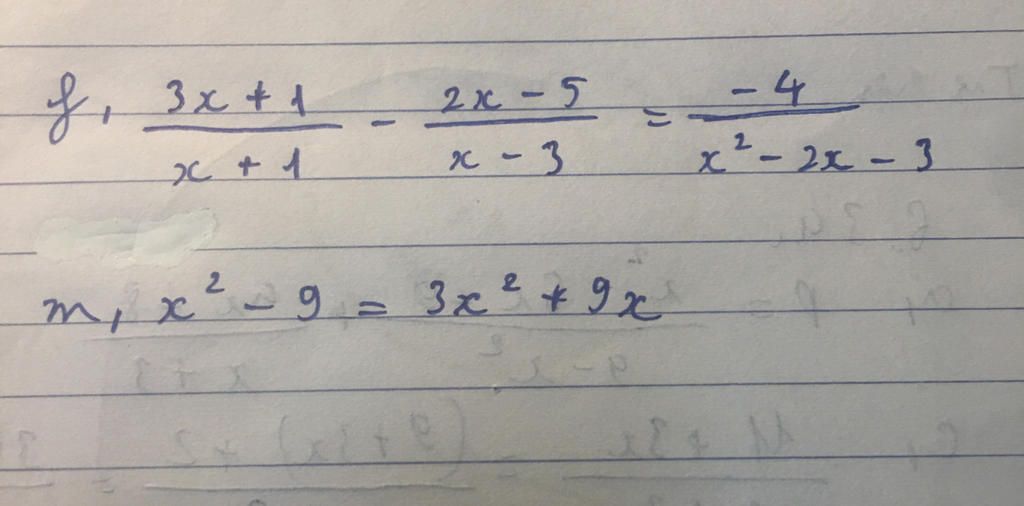 f, (3x + 1)/(x + 1) - (2x - 5)/(x - 3) = -4/(x² - 2x - 3)
m, x² - 9 = 3x² + 9x